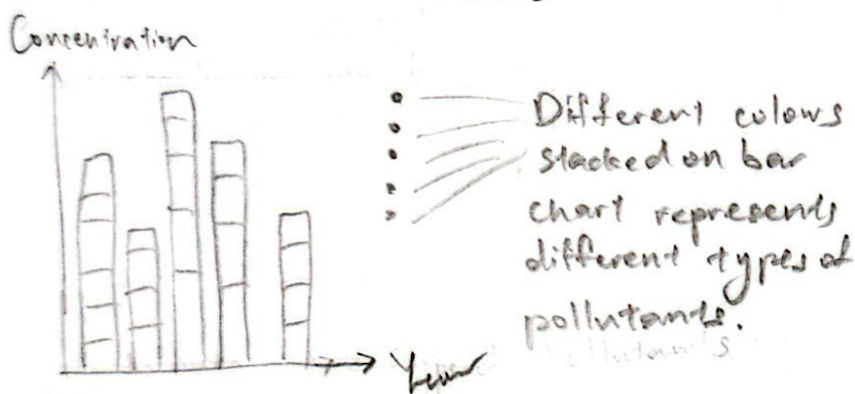 Concentration
Different colours
stacked on bar
chart represents
different types of
pollutants.
Year